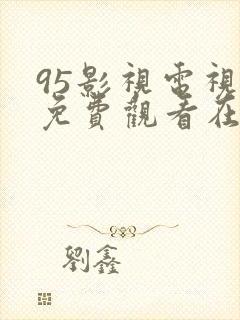 95影視電視
免費觀看在
劉鑫